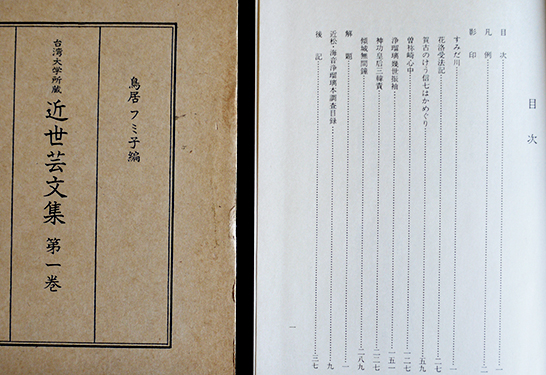 鳥居 フミ子編
台湾大学所蔵 近世芸文集 第一巻
目次
目次……一
凡例……二
影印
すみだ川……一
花洛受法記……二七
賀古のけう信七はかめぐり……五九
曽祢崎心中……一二七
浄瑠璃幾世振袖……一五一
神功皇后三韓責……二二七
傾城無間鐘……二八九
解題……一
近松・海音浄瑠璃本調査目録……九
後記……三七
一